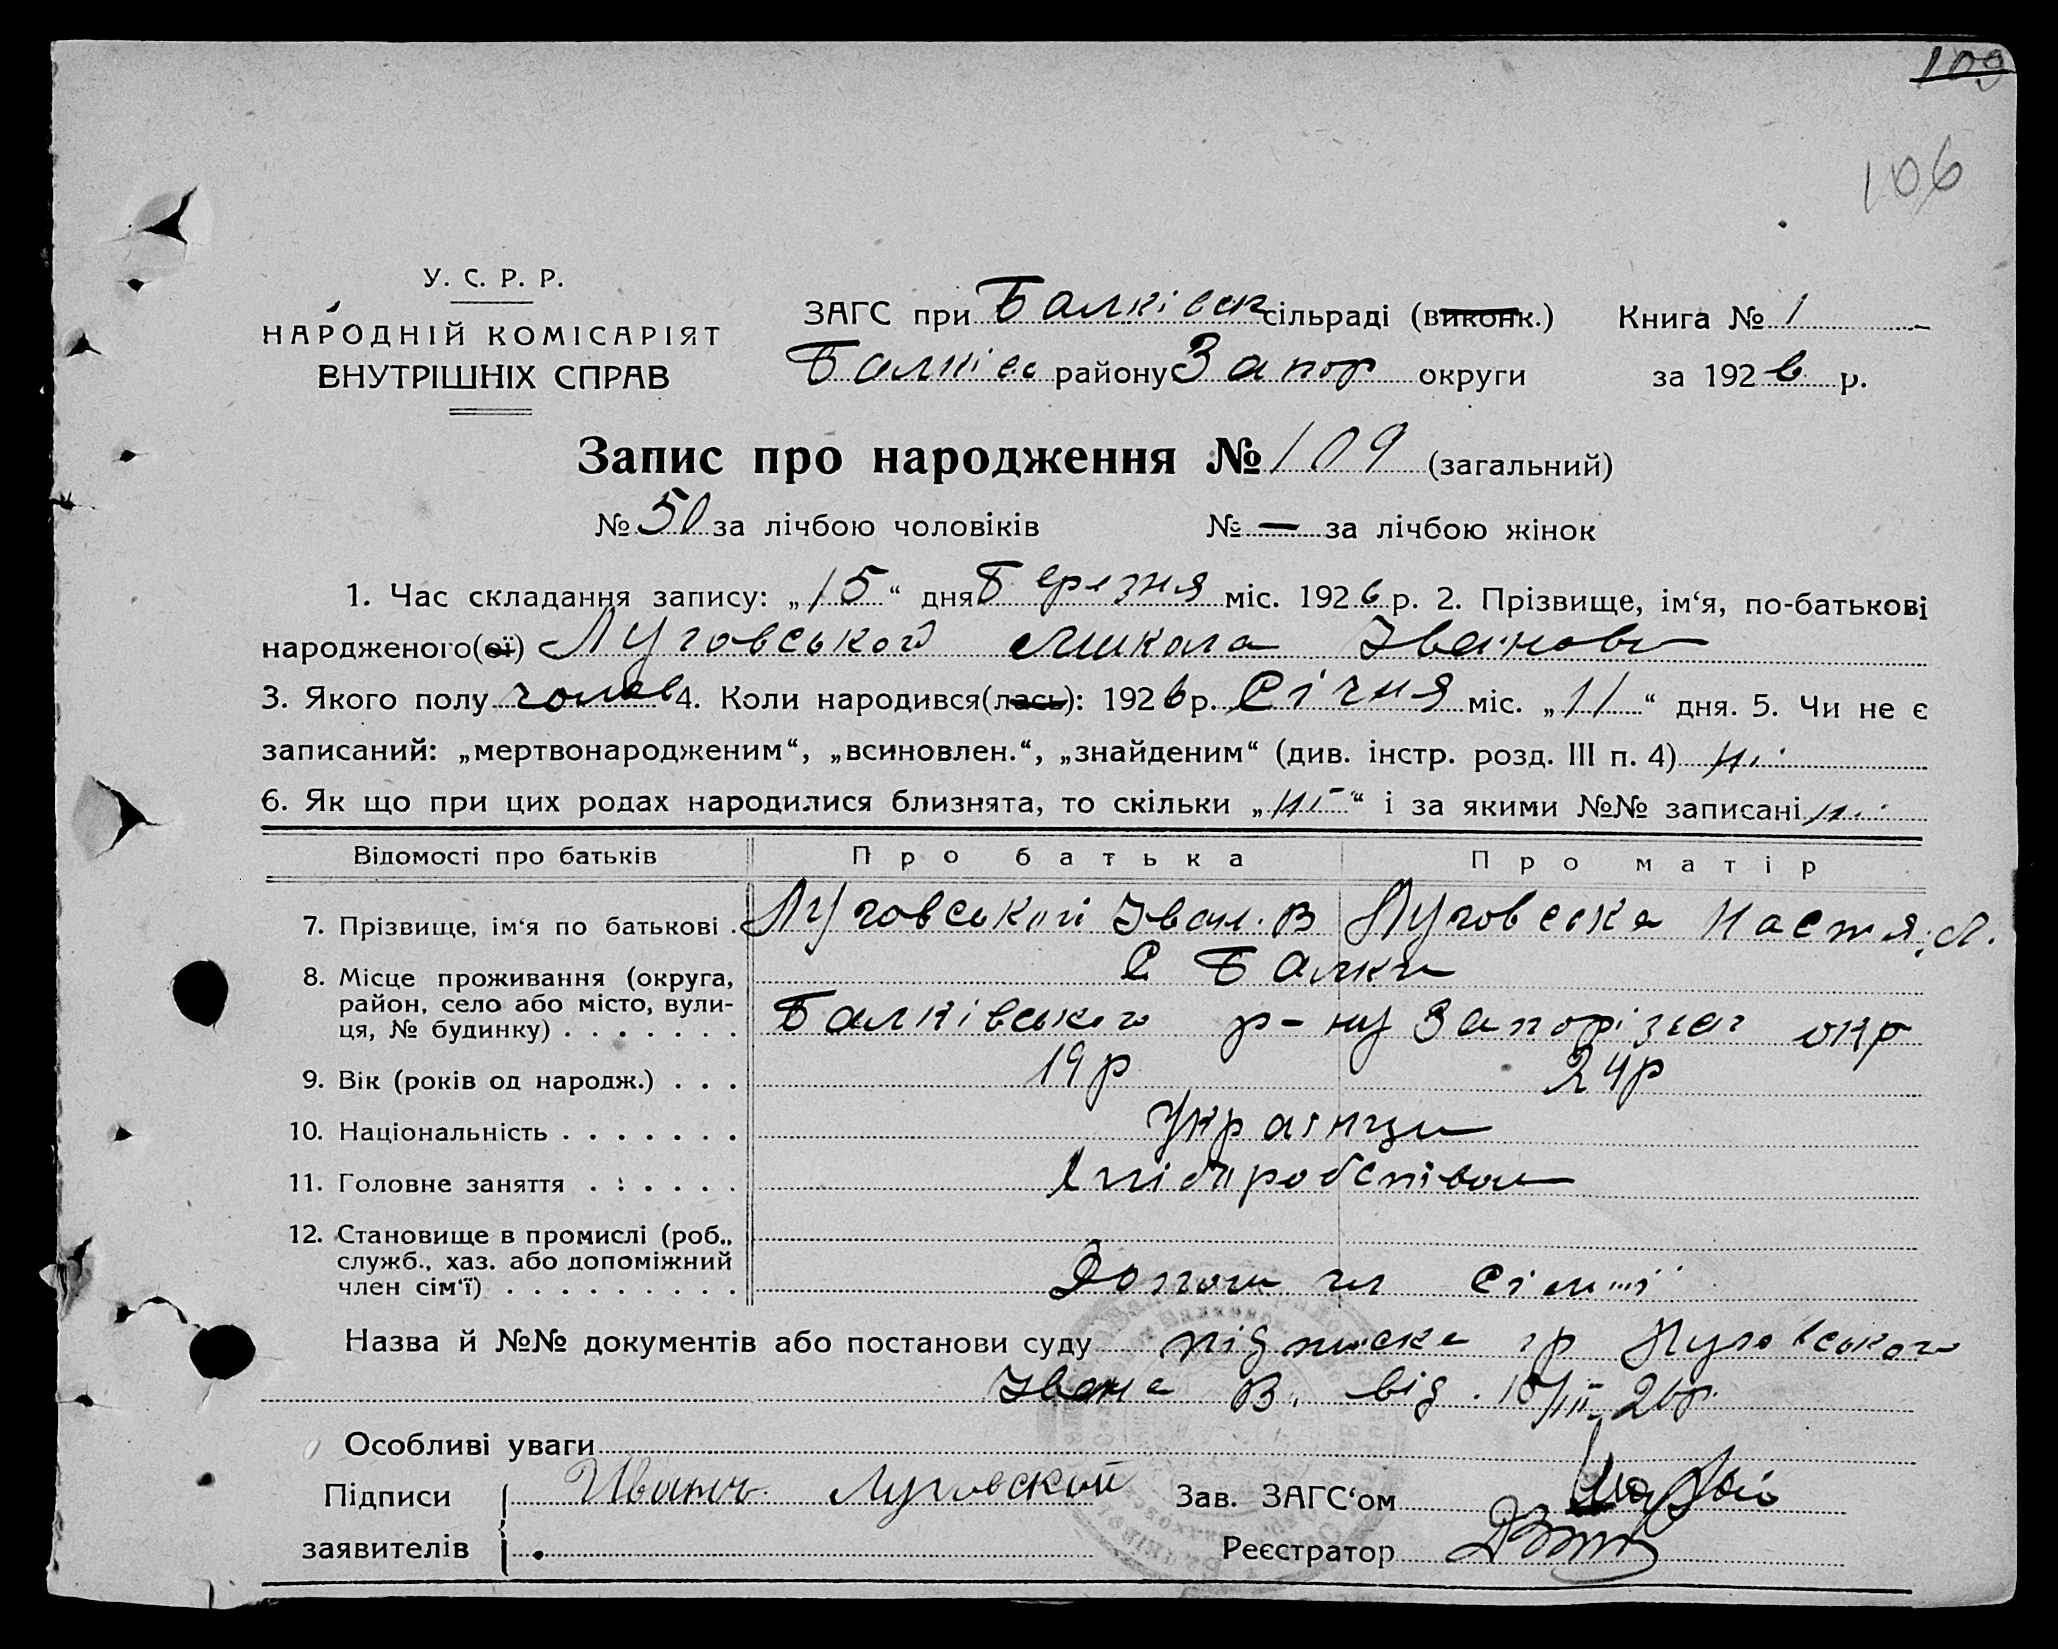 109
106
У. С. Р. Р.
НАРОДНІЙ КОМІСАРІЯТ
ВНУТРІШНІХ СПРАВ
ЗАГС при Балківськ сільраді (виконк.) Книга № 1
Балківс району Запор округи за 1926 р.
Запис про народження № 109 (загальний)
№ 50 за лічбою чоловіків № — за лічбою жінок
1. Час складання запису: „15“ дня Березня міс. 1926 р. 2. Прізвище, ім‘я, по-батькові
народженого(ої) Луговський Микола Іванови
3. Якого полу чолов 4. Коли народився(лась): 1926 р. Січня міс. „11“ дня. 5. Чи не є
записаний: „мертвонародженим“, „всиновлен.“, „знайденим“ (див. інстр. розд. III п. 4) ні
6. Як що при цих родах народилися близнята, то скільки „ні“ і за якими №№ записані ні
Відомості про батьків Про батька Про матір
7. Прізвище, ім‘я по батькові . Луговський Іван. В Луговська Настя. Л.
8. Місце проживання (округа, С Балки
район, село або місто, вули-
ця, № будинку) . . . . . . . Балківського р-ну Запорізьк окр
9. Вік (років од народж.) . . . 19 р 24 р
10. Національність . . . . . . . Українци
11. Головне заняття . . . . . .
12. Становище в промислі (роб.,
служб., хаз. або допоміжний
член сім‘ї) . . . . . . . . . Допом чл сімї
Назва й №№ документів або постанови суду підписка гр Луговського
Івана В. від 15/III-26р.
Особливі уваги
Підписи Иванъ Луговской Зав. ЗАГС‘ом
заявителів Реєстратор